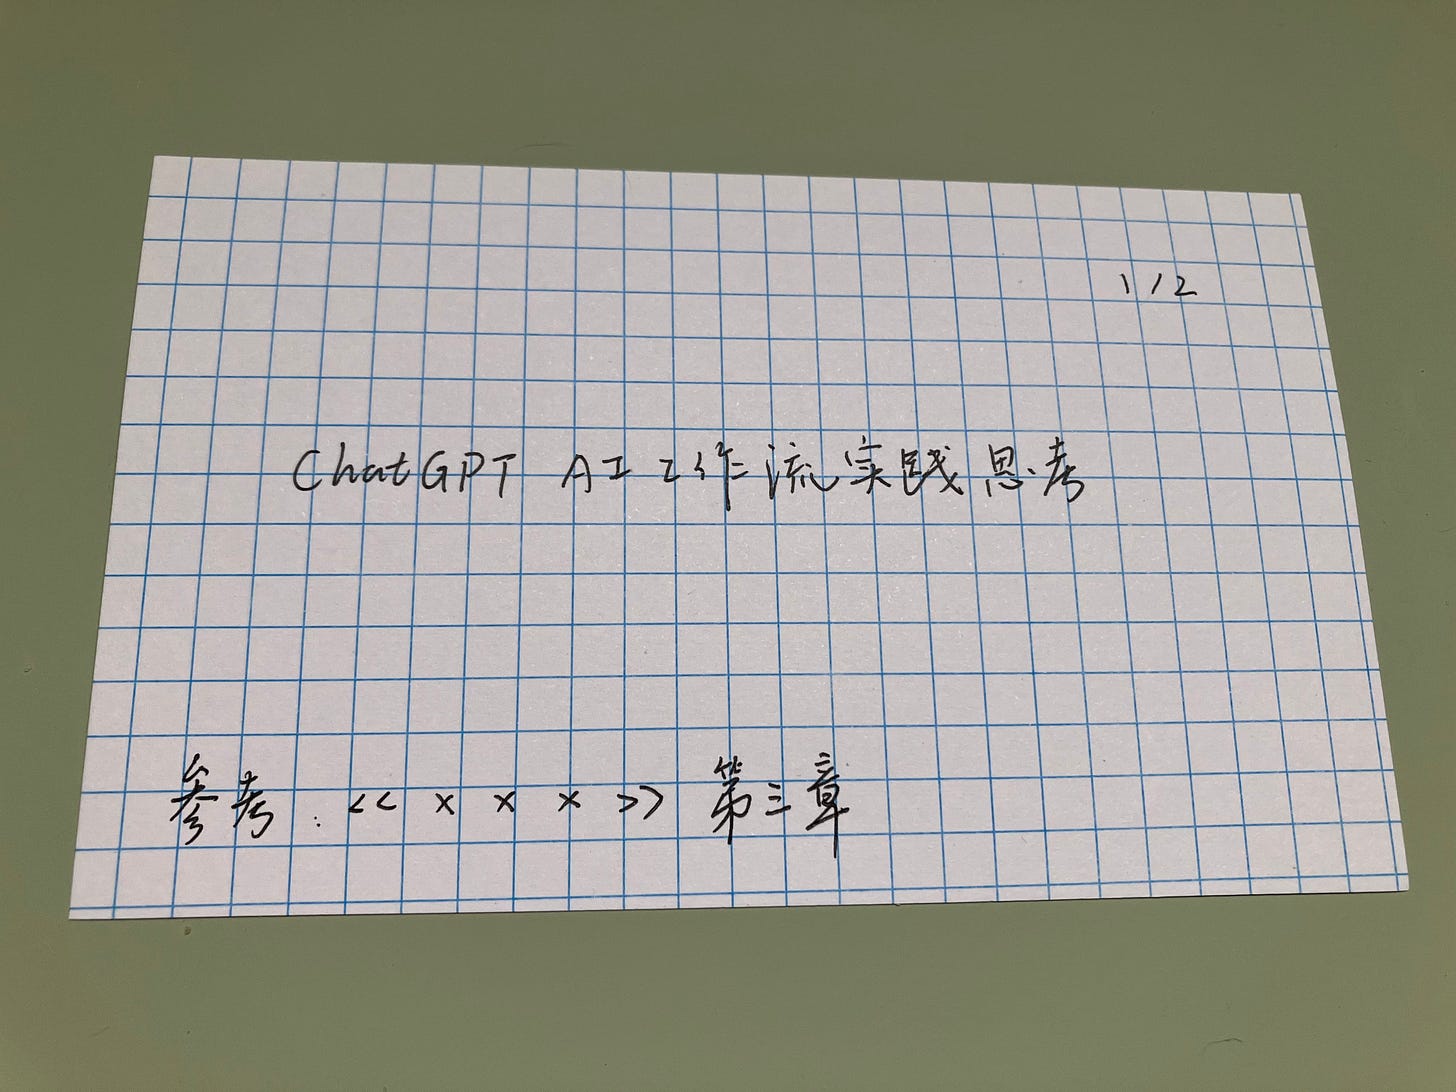 1/2
ChatGPT AI工作流实践思考
参考:<< × × × >> 第三章